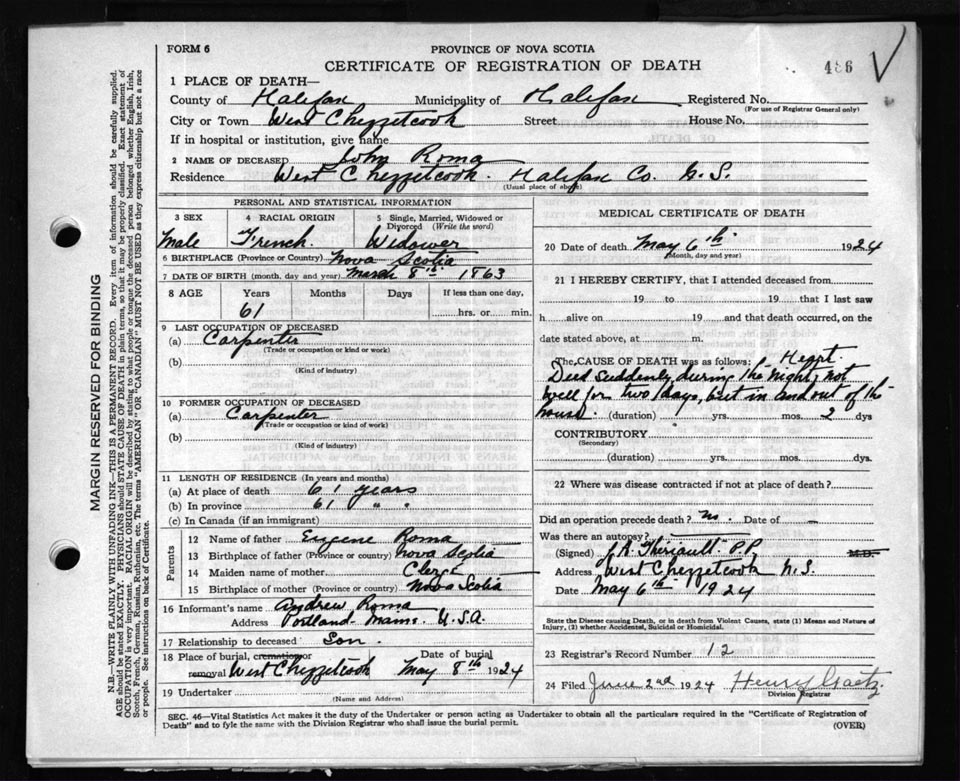 FORM 6
PROVINCE OF NOVA SCOTIA
CERTIFICATE OF REGISTRATION OF DEATH
486
1 PLACE OF DEATH—
County of Halifax Municipality of Halifax Registered No.
(For use of Registrar General only)
City or Town West Chezzetcook Street House No.
If in hospital or institution, give name
2 NAME OF DECEASED John Roma
Residence West Chezzetcook. Halifax Co. N.S.
(Usual place of abode)
PERSONAL AND STATISTICAL INFORMATION
3 SEX 4 RACIAL ORIGIN 5 Single, Married, Widowed or Divorced (Write the word)
Male French. Widower
6 BIRTHPLACE (Province or Country) Nova Scotia
7 DATE OF BIRTH (month, day and year) March 8th 1863
8 AGE Years Months Days If less than one day,
61 hrs. or min.
9 LAST OCCUPATION OF DECEASED
(a) Carpenter
(Trade or occupation or kind or work)
(b)
(Kind of industry)
10 FORMER OCCUPATION OF DECEASED
(a) Carpenter
(Trade or occupation or kind of work)
(b)
(Kind of industry)
11 LENGTH OF RESIDENCE (In years and months)
(a) At place of death 61 years
(b) In province 61 " "
(c) In Canada (if an immigrant)
Parents
12 Name of father Eugene Roma
13 Birthplace of father (Province or country) Nova Scotia
14 Maiden name of mother
15 Birthplace of mother (Province or country) Nova Scotia
16 Informant's name Andrew Roma
Address Portland Mams. U.S.A.
17 Relationship to deceased Son.
18 Place of burial, cremation or removal West Chezzetcook Date of burial May 8th 1924
19 Undertaker
(Name and Address)
MEDICAL CERTIFICATE OF DEATH
20 Date of death May 6th 1924
(Month, day and year)
21 I HEREBY CERTIFY, that I attended deceased from
19 to 19 that I last saw
h alive on 19 and that death occurred, on the
date stated above, at m.
The CAUSE OF DEATH was as follows: Heart.
Died suddenly during the night, not
well for two days, but in and out of the
house. (duration) yrs. mos. 2 dys
CONTRIBUTORY
(Secondary)
(duration) yrs. mos. dys.
22 Where was disease contracted if not at place of death?
Did an operation precede death? No. Date of —
Was there an autopsy?
(Signed) J.R. Theriault. P.P. M.D.
Address West Chezzetcook N.S.
Date May 6th 1924
State the Disease causing Death, or in death from Violent Causes, state (1) Means and Nature of Injury, (2) whether Accidental, Suicidal or Homicidal.
23 Registrar's Record Number 12
24 Filed June 2nd 1924 Henry Gaetz
Division Registrar
SEC. 46—Vital Statistics Act makes it the duty of the Undertaker or person acting as Undertaker to obtain all the particulars required in the "Certificate of Registration of
Death" and to fyle the same with the Division Registrar who shall issue the burial permit. (OVER)
MARGIN RESERVED FOR BINDING
N.B.—WRITE PLAINLY WITH UNFADING INK—THIS IS A PERMANENT RECORD. Every item of information should be carefully supplied.
AGE should be stated EXACTLY. PHYSICIANS should STATE CAUSE OF DEATH in plain terms, so that it may be properly classified. Exact statement of
OCCUPATION is very important. RACIAL ORIGIN will be described by stating to what people or tongue the deceased person belonged whether English, Irish,
Scotch, French, German, Russian, Ruthenian, etc. The terms "AMERICAN" OR "CANADIAN" MUST NOT BE USED as they express citizenship but not a race
or people. See Instructions on back of Certificate.